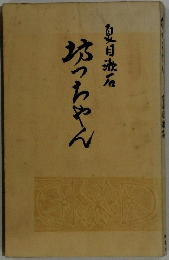 夏目漱石
坊っちやん